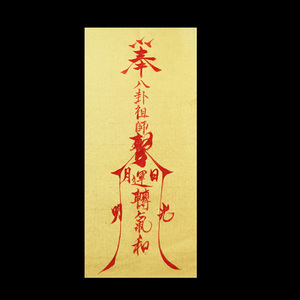 奉八卦祖師
日月
運轉氣和
光明